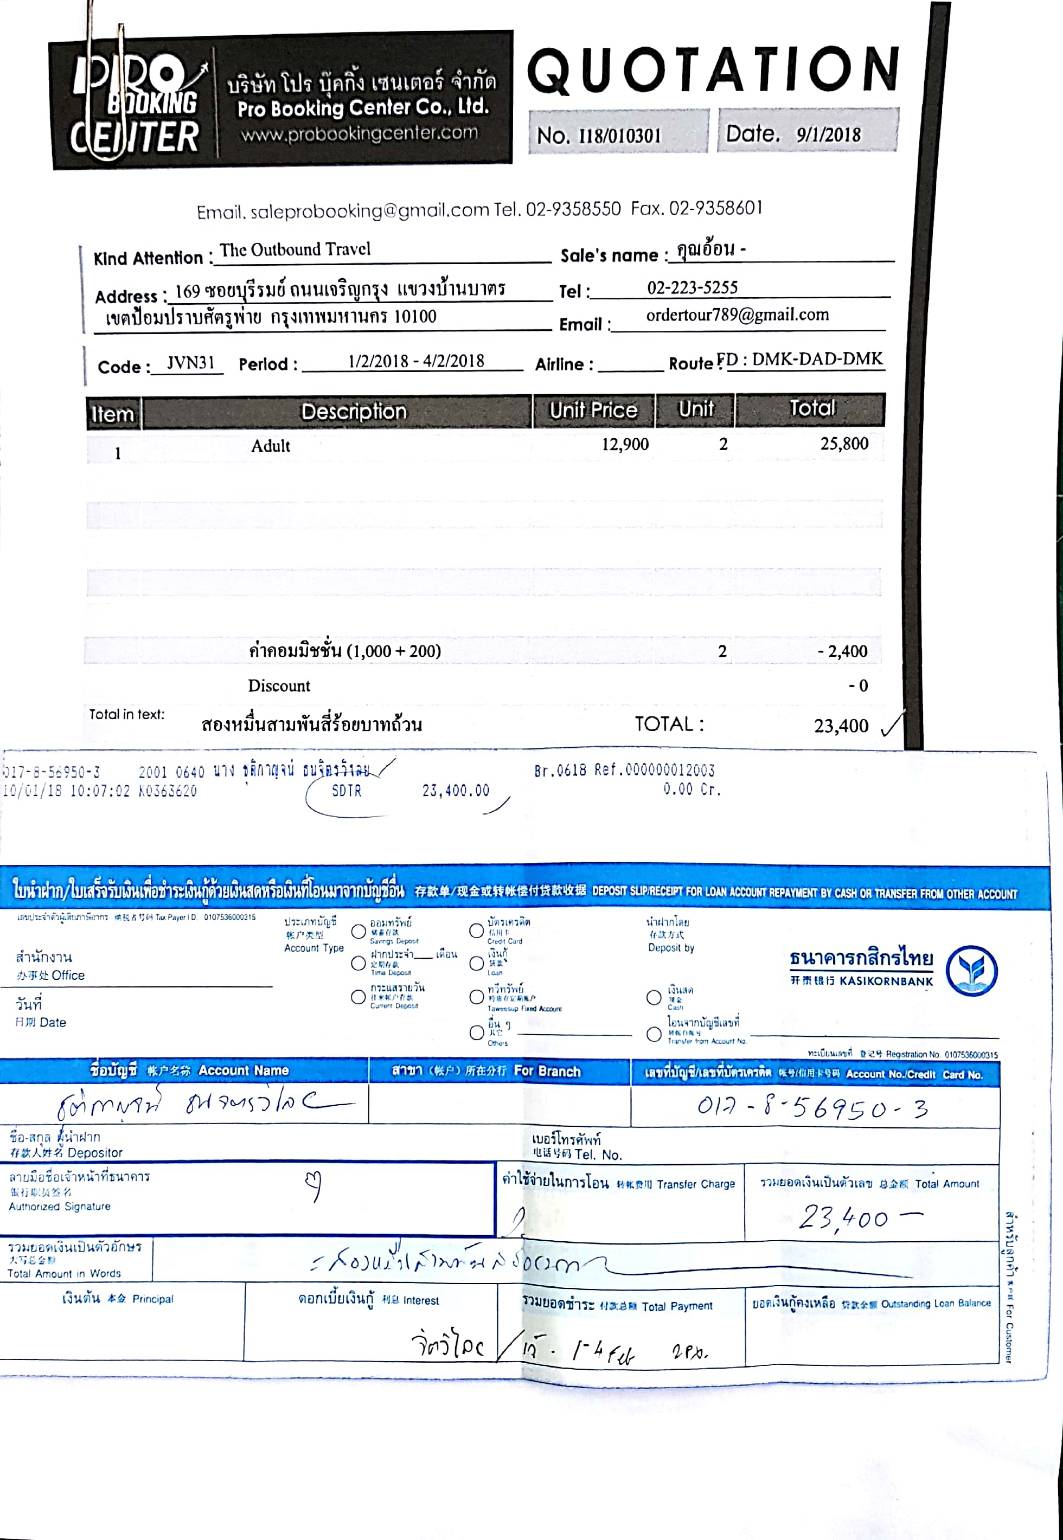 PRO BOOKING CENTER
บริษัท โปร บุ๊คกิ้ง เซนเตอร์ จำกัด
Pro Booking Center Co., Ltd.
www.probookingcenter.com
QUOTATION
No. I18/010301 Date. 9/1/2018
Email. saleprobooking@gmail.com Tel. 02-9358550 Fax. 02-9358601
Kind Attention : The Outbound Travel Sale's name : คุณอ้อน -
Address : 169 ซอยบุรีรมย์ ถนนเจริญกรุง แขวงบ้านบาตร Tel : 02-223-5255
เขตป้อมปราบศัตรูพ่าย กรุงเทพมหานคร 10100 Email : ordertour789@gmail.com
Code : JVN31 Period : 1/2/2018 - 4/2/2018 Airline : Route : FD : DMK-DAD-DMK
Item Description Unit Price Unit Total
1 Adult 12,900 2 25,800
ค่าคอมมิชชั่น (1,000 + 200) 2 - 2,400
Discount - 0
Total in text: สองหมื่นสามพันสี่ร้อยบาทถ้วน TOTAL : 23,400
017-8-56950-3 2001 0640 นาง ชุติกาญจน์ ธนจิตรวิไลย Br.0618 Ref.000000012003
10/01/18 10:07:02 K0363620 SDTR 23,400.00 0.00 Cr.
ใบนำฝาก/ใบเสร็จรับเงินเพื่อชำระเงินกู้ด้วยเงินสดหรือเงินที่โอนมาจากบัญชีอื่น 存款单/现金或转帐偿付贷款收据 DEPOSIT SLIP/RECEIPT FOR LOAN ACCOUNT REPAYMENT BY CASH OR TRANSFER FROM OTHER ACCOUNT
เลขประจำตัวผู้เสียภาษีอากร 纳税者号码 Tax Payer I.D. 0107536000315
สำนักงาน
办事处 Office
วันที่
日期 Date
ประเภทบัญชี
帐户类型
Account Type
ออมทรัพย์
储蓄存款
Savings Deposit
ฝากประจำ เดือน
定期存款
Time Deposit
กระแสรายวัน
往来帐户存款
Current Deposit
บัตรเครดิต
信用卡
Credit Card
เงินกู้
贷款
Loan
ทวีทรัพย์
特惠存定期账户
Taweesup Fixed Account
อื่น ๆ
其它
Others
นำฝากโดย
存款方式
Deposit by
เงินสด
现金
Cash
โอนจากบัญชีเลขที่
转帐自帐号
Transfer from Account No.
ธนาคารกสิกรไทย
开泰银行 KASIKORNBANK
ทะเบียนเลขที่ 登记号 Registration No. 0107536000315
ชื่อบัญชี 帐户名称 Account Name สาขา (帐户) 所在分行 For Branch เลขที่บัญชี/เลขที่บัตรเครดิต 帐号/信用卡号码 Account No./Credit Card No.
ชุติกาญจน์ ธนจิตรวิไลย 017-8-56950-3
ชื่อ-สกุล ผู้นำฝาก
存款人姓名 Depositor
เบอร์โทรศัพท์
电话号码 Tel. No.
ลายมือชื่อเจ้าหน้าที่ธนาคาร
银行职员签名
Authorized Signature
ค่าใช้จ่ายในการโอน 转帐费用 Transfer Charge
รวมยอดเงินเป็นตัวเลข 总金额 Total Amount
23,400 -
รวมยอดเงินเป็นตัวอักษร
大写总金额
Total Amount in Words
เงินต้น 本金 Principal ดอกเบี้ยเงินกู้ 利息 Interest รวมยอดชำระ 付款总额 Total Payment ยอดเงินกู้คงเหลือ 贷款余额 Outstanding Loan Balance
1-4 Feb
สำหรับลูกค้า 客户联 For Customer